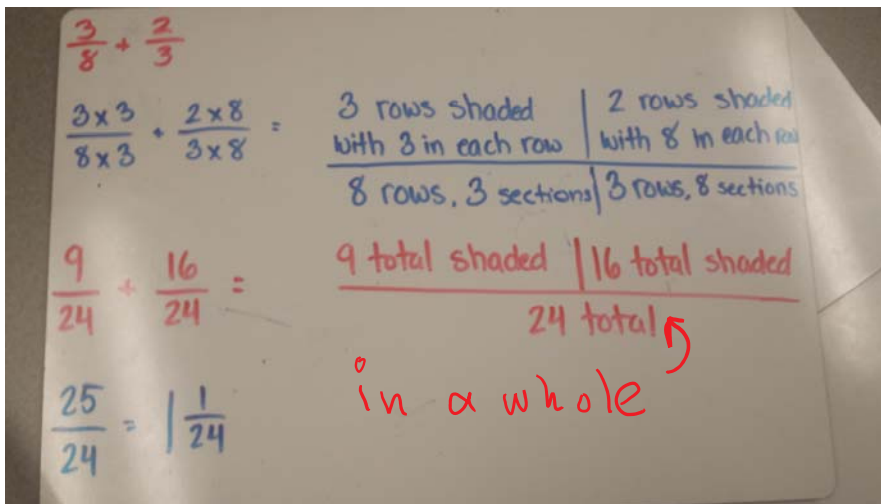 3/8 + 2/3
3x3/8x3 + 2x8/3x8 =
3 rows shaded | 2 rows shaded
with 3 in each row | with 8 in each row
8 rows, 3 sections | 3 rows, 8 sections
9/24 + 16/24 =
9 total shaded | 16 total shaded
24 total
in a whole
25/24 = 1 1/24